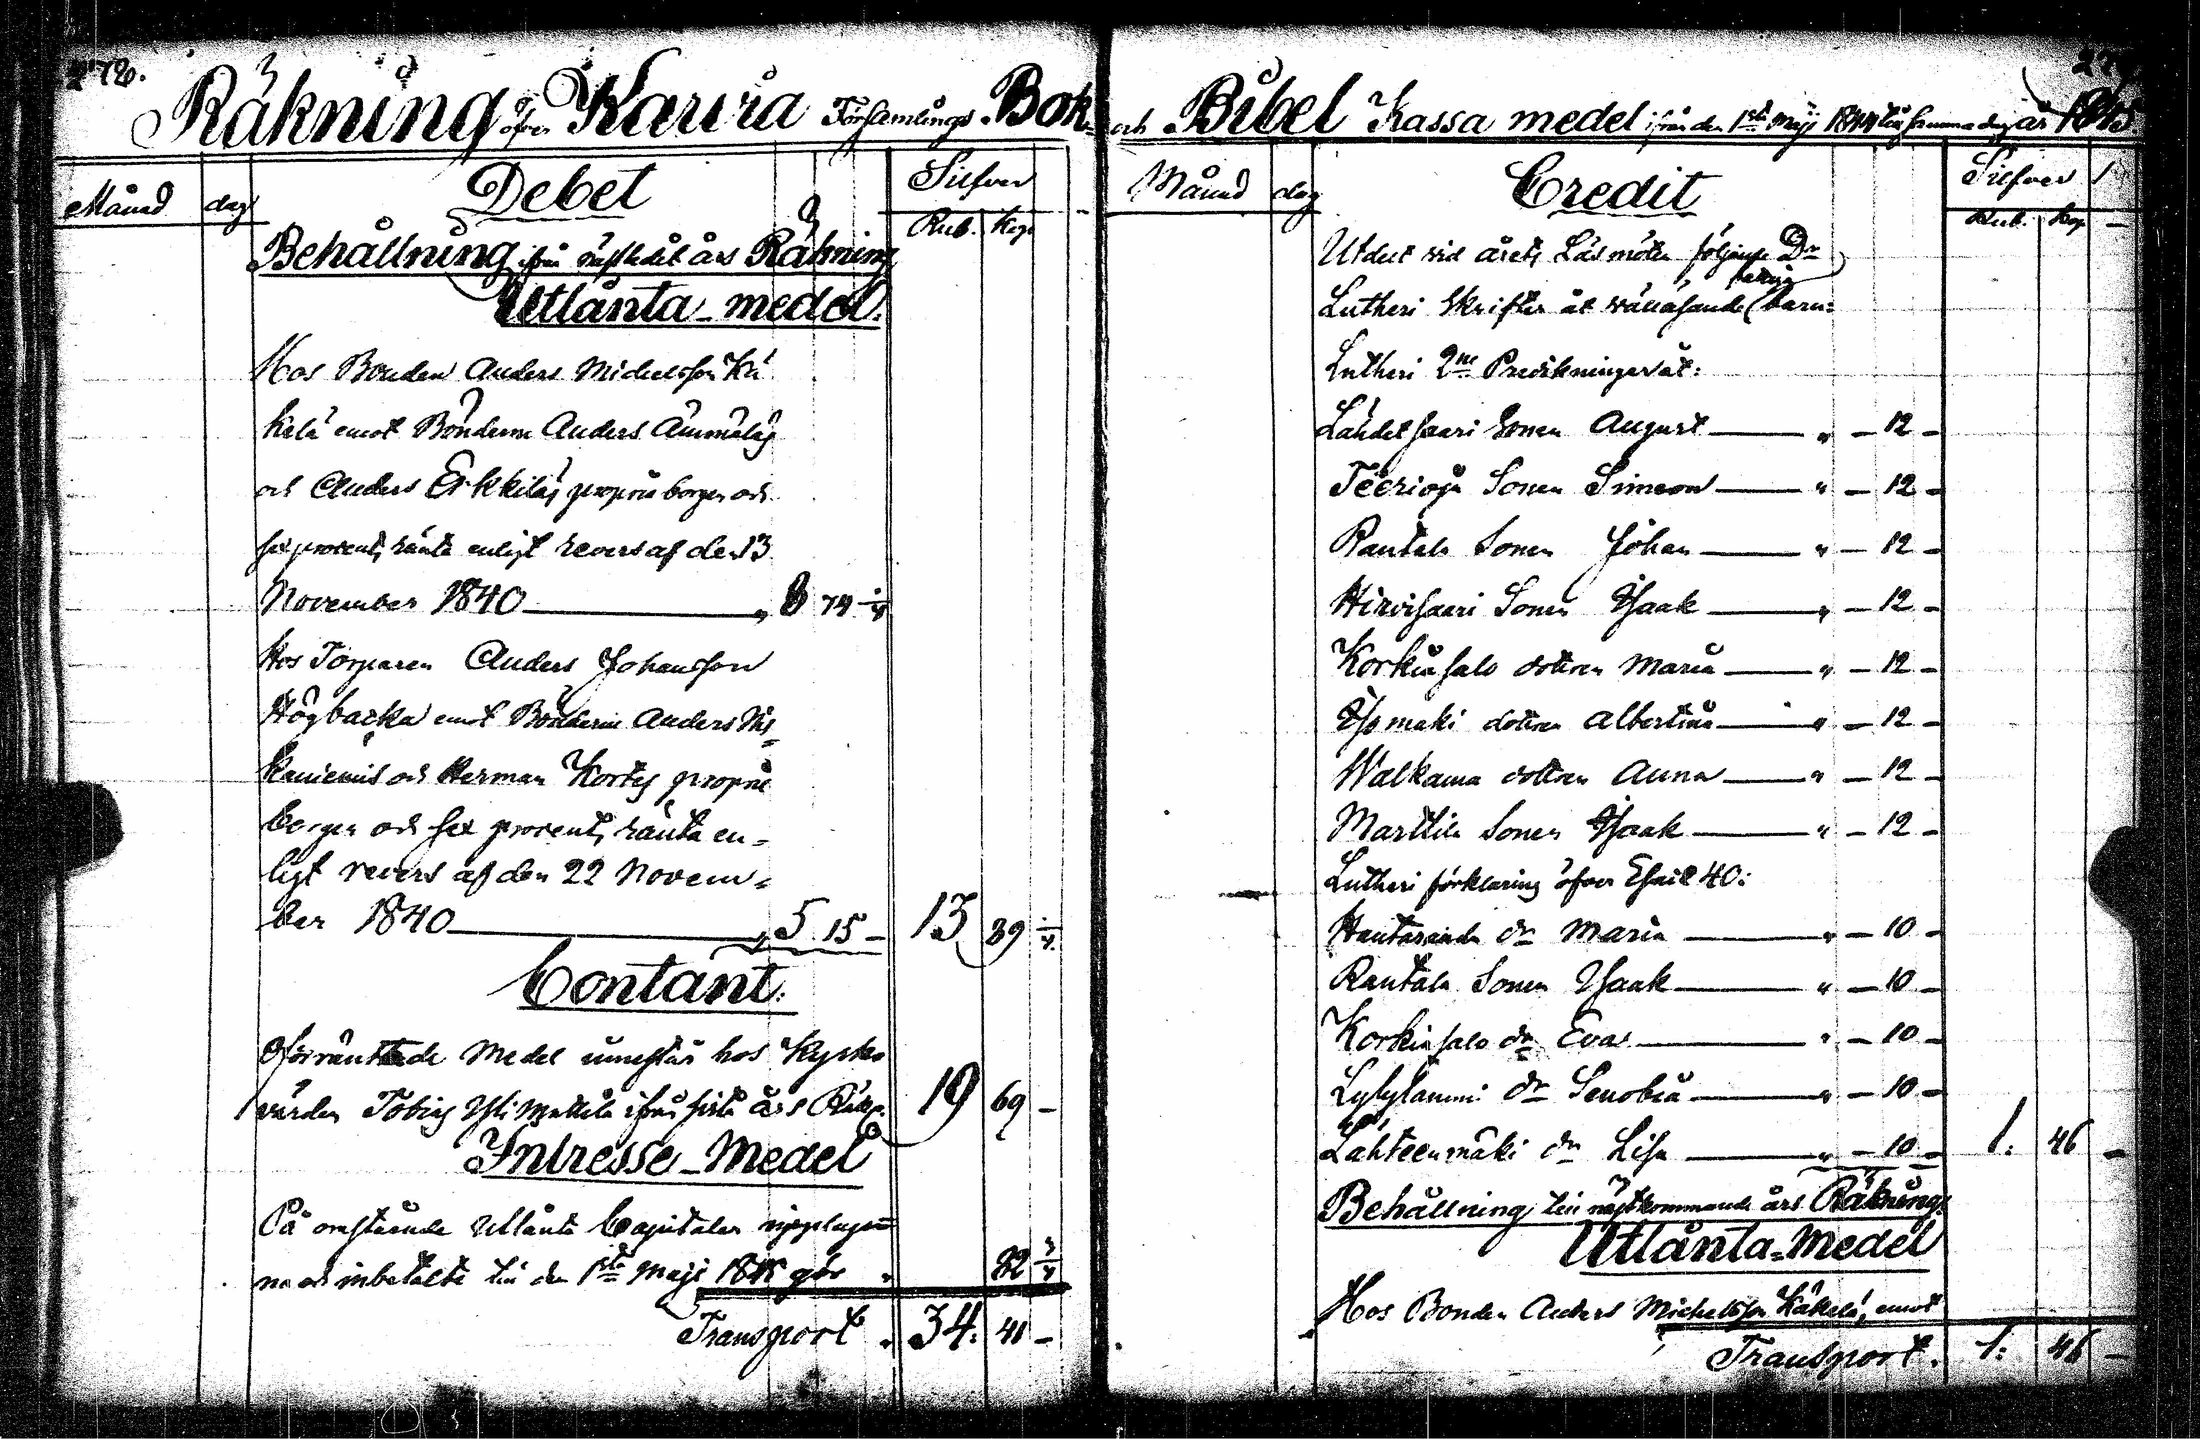 278.
Räkning öfver Karvia Församlings Bok-
Månad dag Debet Silfver
Rub. Kop
Behållning ifrån nästledit års Räkning
Utlånta medel.
Hos Bonden Anders Michelsson Kä
kelä emot Bönderne Anders Ämmäläs
och Anders Erkkiläs proprie borgen och
sex procents ränta enligt revers af den 13
November 1840 " 8 74 1/4
Hos Torparen Anders Johansson
Högbacka emot Bönderne Anders
kaniemis och Herman Kortes proprie
borgen och sex procents ränta en-
ligt revers af den 22 Novem-
ber 1840 " 5 15 – 13 89 1/4
Contant.
Oförräntade Medel innestår hos Kyrko
värden Tobias Ylimattila ifrån sista års Räkn.
19 69 –
Intresse-Medel
På omstående Utlånta Capitaler upplupna
na och inbetalte till den 1sta Maji 1845 gör " 82 3/4
Transport " 34. 41 –
279
och Bibel Kassa medel ifrån den 1sta Maji 1844 till samma dag år 1845
Månad dag Credit Silfver
Rub. Kop
Utdelt vid årets Läsmöten följande Dr
Lutheri Skrifter åt välläsande barn:
Lutheri 2ne Predikningar åt:
Lähdetsaari Sonen August " – 12 –
Teerioja Sonen Simeon " – 12 –
Rantala Sonen Johan " – 12 –
Hirvisaari Sonen Isaak " – 12 –
Korkiasalo dottren Maria " – 12 –
Isomäki dottren Albertina " – 12 –
Walkama dottren Anna " – 12 –
Marttila Sonen Isaak " – 12 –
Lutheri förklaring öfver Esaie 40:
Hautaranda dr Maria " – 10 –
Rantala Sonen Isaak " – 10 –
Korkiasalo dr Eva " – 10 –
Lylylammi dr Senobia " – 10 –
Lähteenmäki dr Lisa " – 10 – 1: 46 –
Behållning till nästkommande års Räkning.
Utlånta-Medel
Hos Bonden Anders Michelsson Käkelä, emot
Transport. 1: 46 –